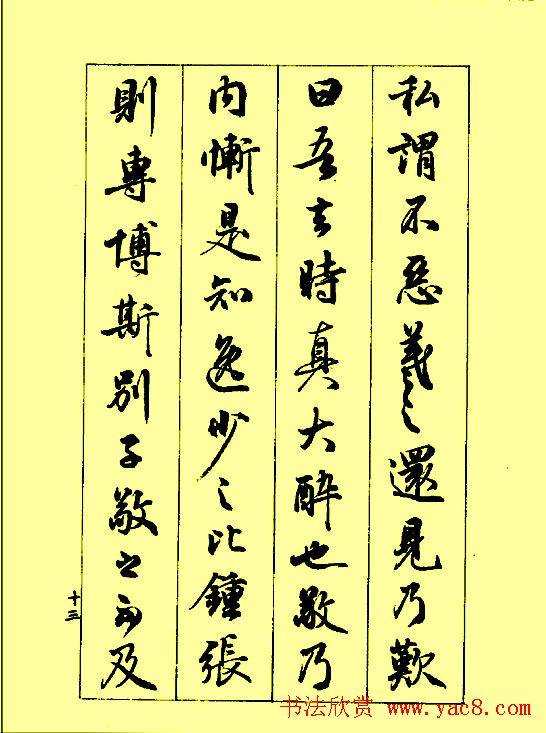 私謂不惡羲之還見乃歎
曰吾去時真大醉也敬乃
内慚是知逸少之比鍾張
則專博斯別子敬之不及
十三
书法欣赏 www.yac8.com